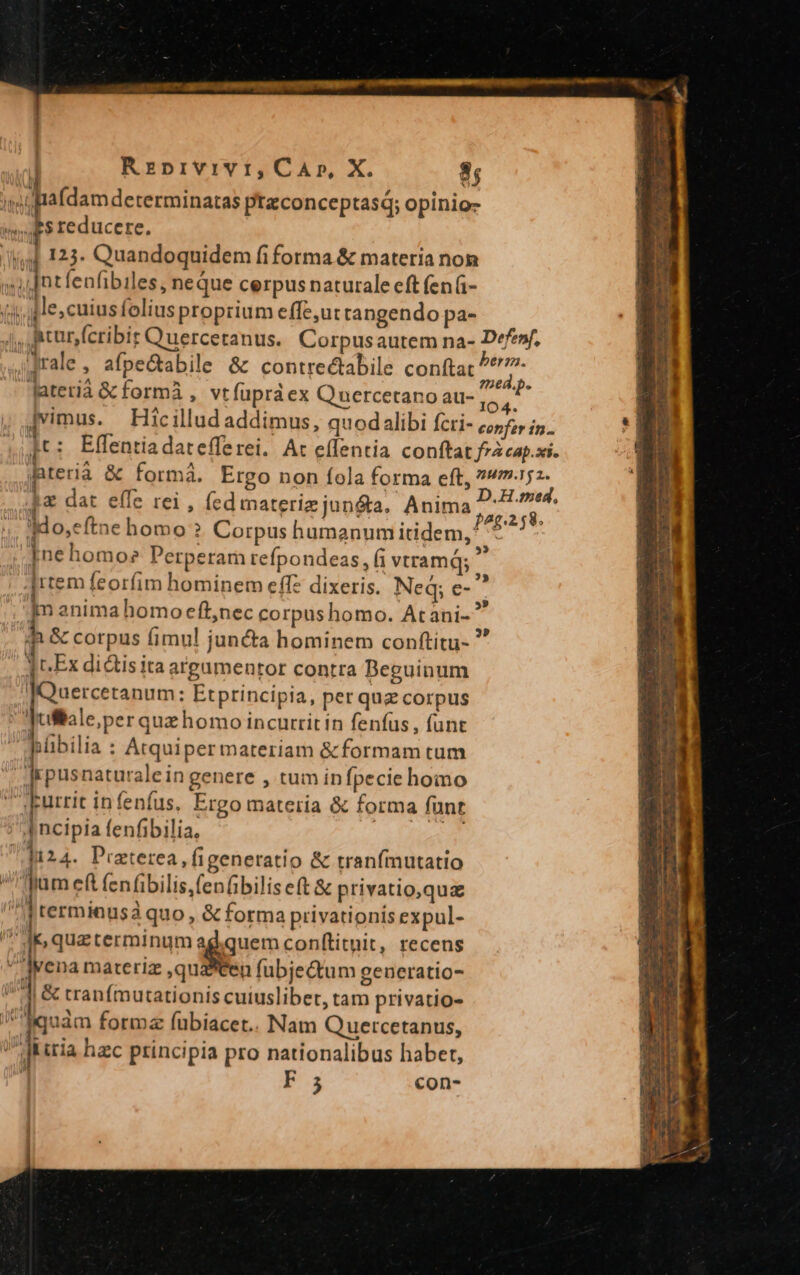 REDIVIVI, CAP. X. 85
ſdam determinatas præconceptasq́; opinio-
s reducere.
123. Quandoquidem ſi forma & materia non
nt ſenſibiles, neque corpus naturale eſt ſenſi-
le, cuius ſolius proprium eſſe, ut tangendo pa-
tur, ſcribit Quercetanus. Corpus autem na-
rale, aſpectabile & contrectabile conſtat
ateriâ & formâ, vt ſuprà ex Quercetano au-
vimus. Hîc illud addimus, quod alibi ſcri-
t: Eſſentia dat eſſe rei. At eſſentia conſtat
ateriâ & formâ. Ergo non ſola forma eſt,
æ dat eſſe rei, ſed materiæ juncta. Anima
do, eſtne homo? Corpus humanum itidem,
ne homo? Perperam reſpondeas, ſi vtramq́;
rtem ſeorſim hominem eſſe dixeris. Neq́; e-
m anima homo eſt, nec corpus homo. At ani-
a & corpus ſimul juncta hominem conſtitu-
t. Ex dictis ita argumentor contra Beguinum
Quercetanum: Et principia, per quæ corpus
ale, per quæ homo incurrit in ſenſus, ſunt
ſibilia: Atqui per materiam & formam tum
rpus naturale in genere, tum in ſpecie homo
currit in ſenſus. Ergo materia & forma ſunt
ncipia ſenſibilia.
124. Præterea, ſi generatio & tranſmutatio
um eſt ſenſibilis, ſenſibilis eſt & privatio, quæ
terminus à quo, & forma privationis expul-
quæ terminum ad quem conſtituit, recens
vena materiæ, ten ſubjectum generatio-
& tranſmutationis cuiuslibet, tam privatio-
quàm formæ ſubiacet. Nam Quercetanus,
tria hæc principia pro nationalibus habet,
F 3 con-
Defenſ.
herm.
med. p.
104.
confer in-
frà cap. xi.
num. 152.
D. H. med.
pag. 258.
”
”
”
”